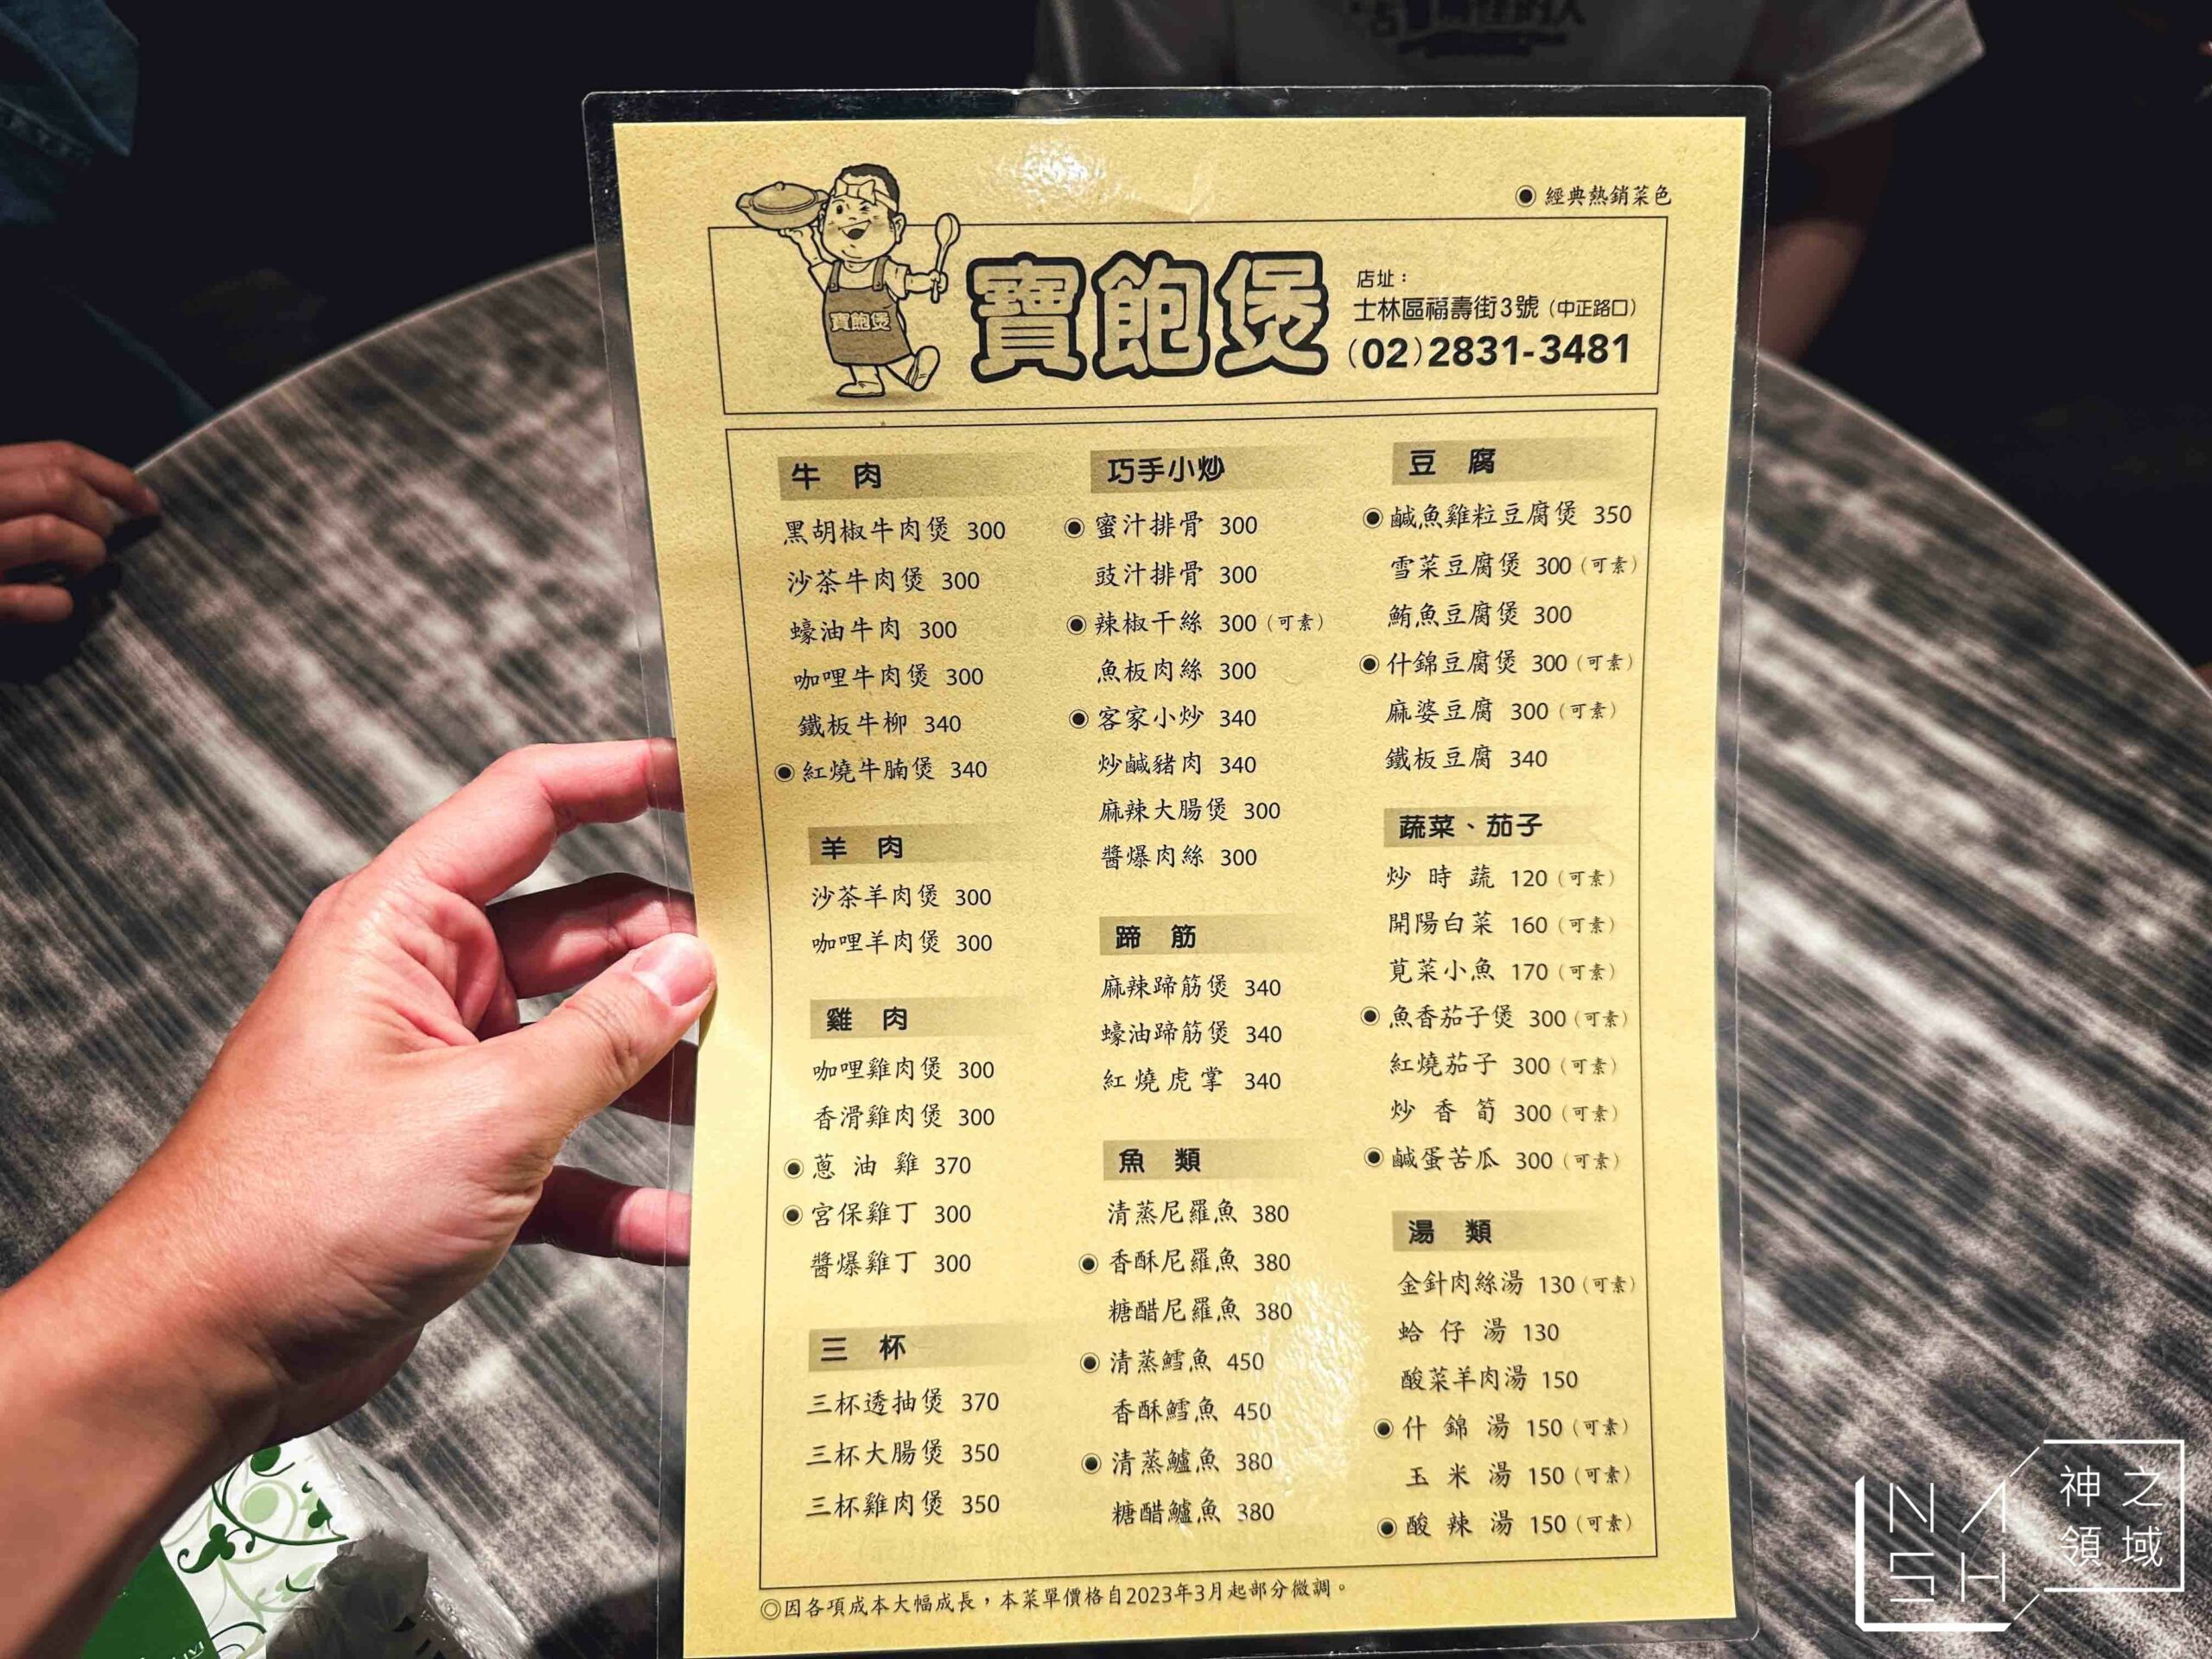 ◉ 經典熱銷菜色
寶飽煲
寶飽煲
店址：
士林區福壽街3號（中正路口）
(02)2831-3481
牛 肉
黑胡椒牛肉煲 300
沙茶牛肉煲 300
蠔油牛肉 300
咖哩牛肉煲 300
鐵板牛柳 340
◉ 紅燒牛腩煲 340
羊 肉
沙茶羊肉煲 300
咖哩羊肉煲 300
雞 肉
咖哩雞肉煲 300
香滑雞肉煲 300
◉ 蔥 油 雞 370
◉ 宮保雞丁 300
醬爆雞丁 300
三 杯
三杯透抽煲 370
三杯大腸煲 350
三杯雞肉煲 350
巧手小炒
◉ 蜜汁排骨 300
豉汁排骨 300
◉ 辣椒干絲 300（可素）
魚板肉絲 300
◉ 客家小炒 340
炒鹹豬肉 340
麻辣大腸煲 300
醬爆肉絲 300
蹄 筋
麻辣蹄筋煲 340
蠔油蹄筋煲 340
紅燒虎掌 340
魚 類
清蒸尼羅魚 380
◉ 香酥尼羅魚 380
糖醋尼羅魚 380
◉ 清蒸鱈魚 450
香酥鱈魚 450
◉ 清蒸鱸魚 380
糖醋鱸魚 380
豆 腐
◉ 鹹魚雞粒豆腐煲 350
雪菜豆腐煲 300（可素）
鮪魚豆腐煲 300
◉ 什錦豆腐煲 300（可素）
麻婆豆腐 300（可素）
鐵板豆腐 340
蔬菜、茄子
炒 時 蔬 120（可素）
開陽白菜 160（可素）
莧菜小魚 170（可素）
◉ 魚香茄子煲 300（可素）
紅燒茄子 300（可素）
炒 香 筍 300（可素）
◉ 鹹蛋苦瓜 300（可素）
湯 類
金針肉絲湯 130（可素）
蛤 仔 湯 130
酸菜羊肉湯 150
◉ 什 錦 湯 150（可素）
玉 米 湯 150（可素）
◉ 酸 辣 湯 150（可素）
◎因各項成本大幅成長，本菜單價格自2023年3月起部分微調。
NASH
神之
領域